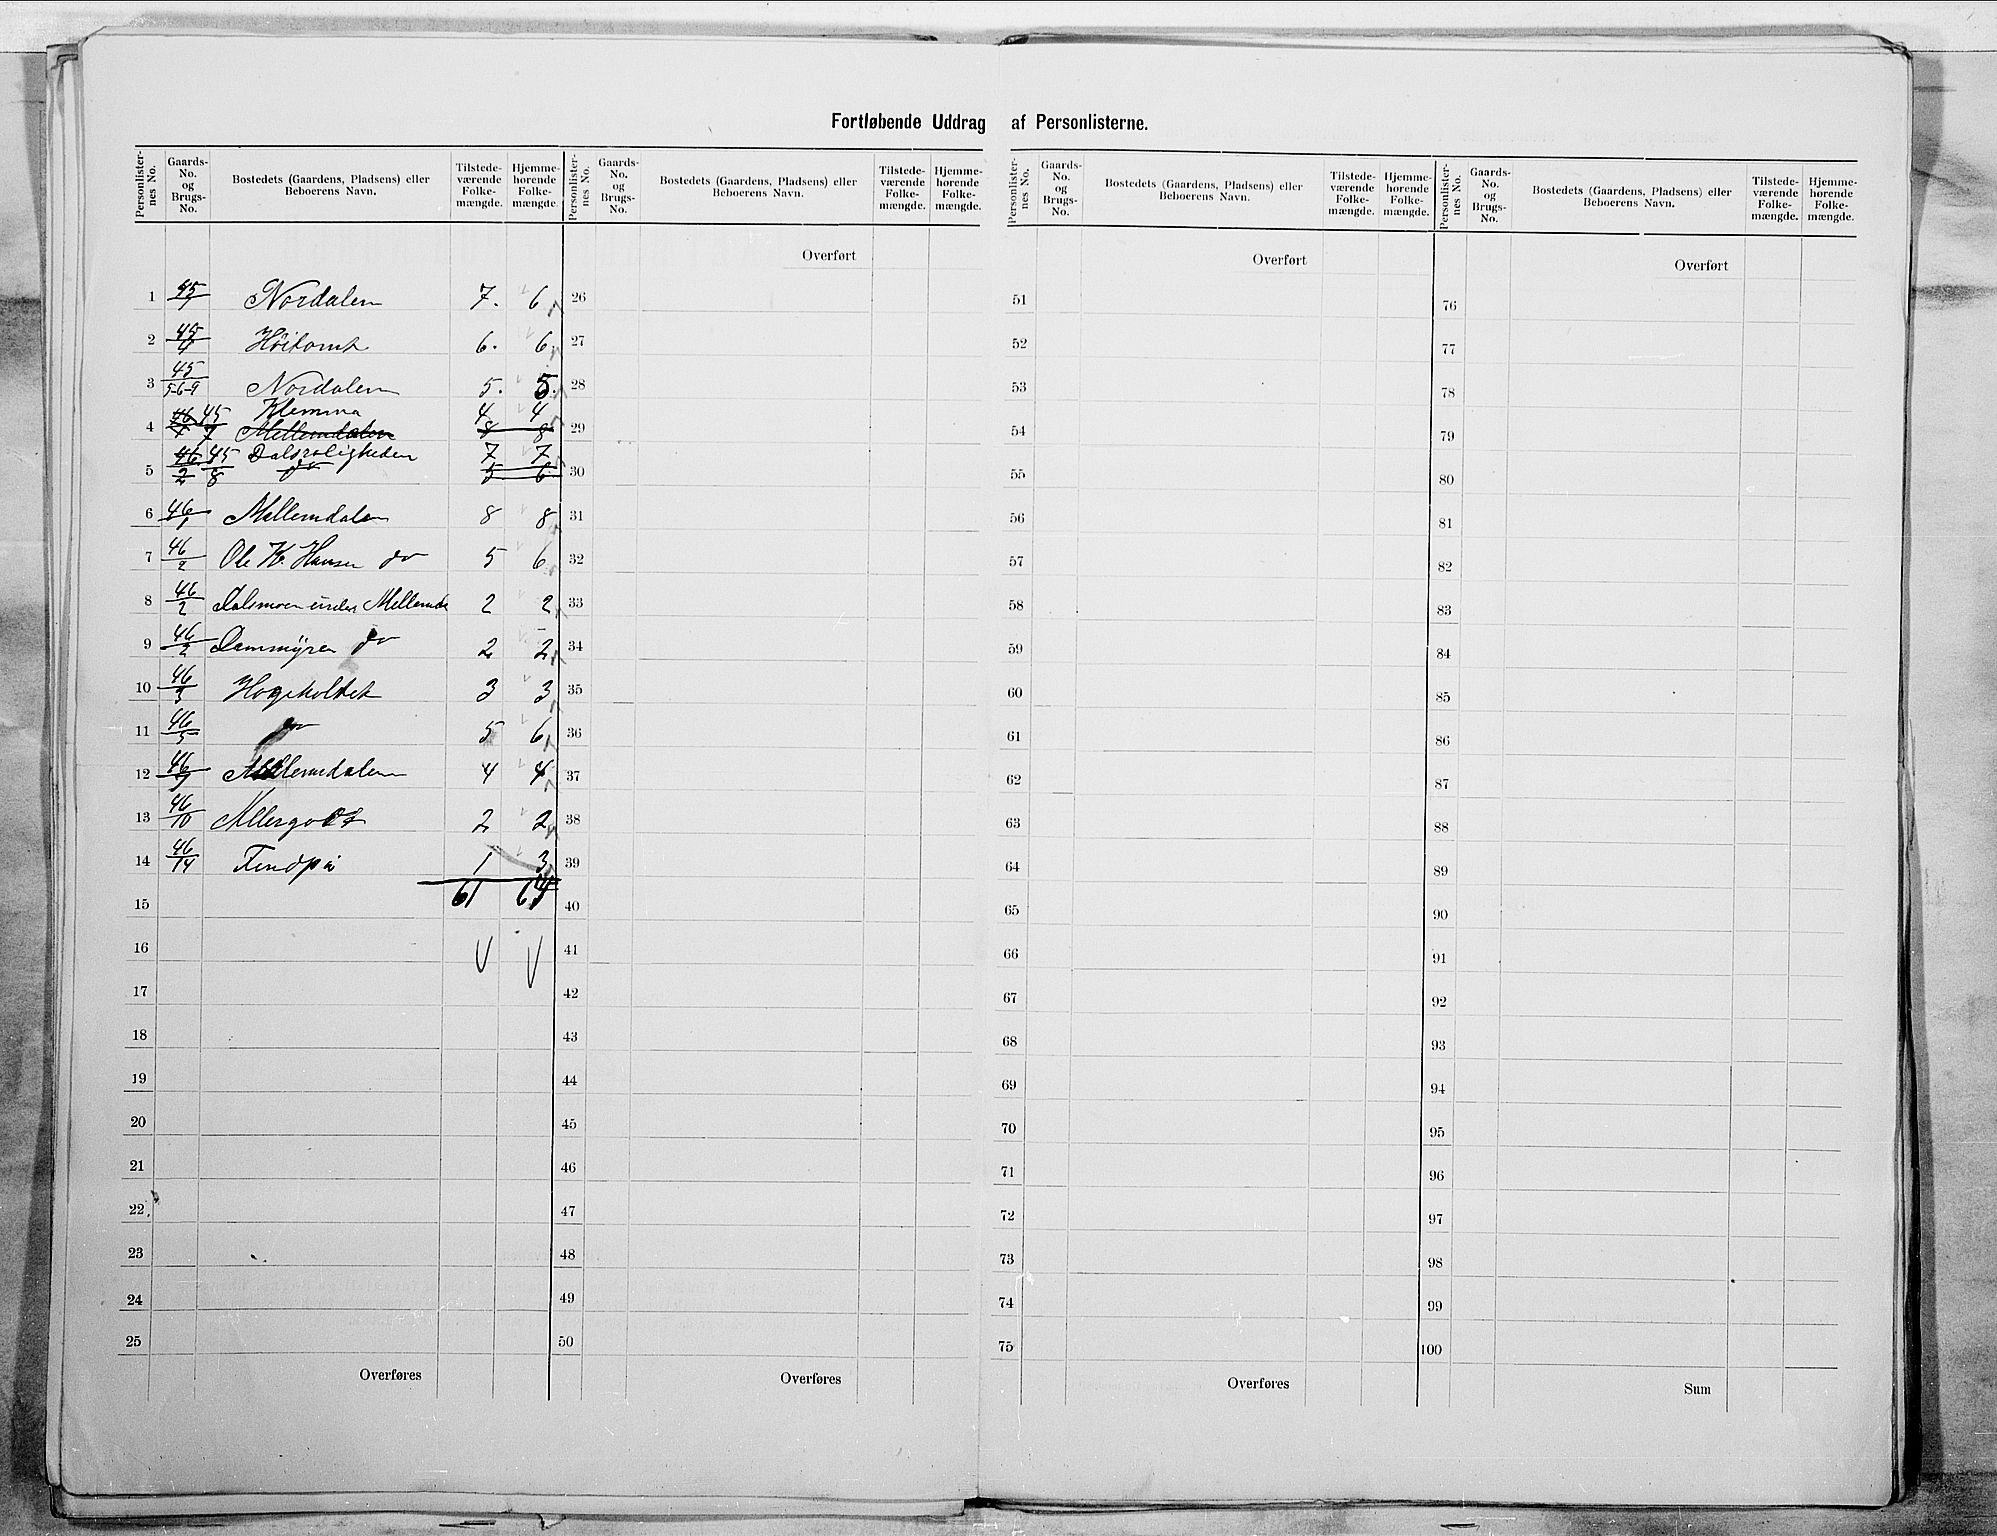 Fortløbende Uddrag af Personlisterne.
Personlister-nes No. Gaards-No. og Brugs-No. Bostedets (Gaardens, Pladsens) eller Beboerens Navn. Tilstede-værende Folke-mængde. Hjemme-hørende Folke-mængde. Personlister-nes No. Gaards-No. og Brugs-No. Bostedets (Gaardens, Pladsens) eller Beboerens Navn. Tilstede-værende Folke-mængde. Hjemme-hørende Folke-mængde. Personlister-nes No. Gaards-No. og Brugs-No. Bostedets (Gaardens, Pladsens) eller Beboerens Navn. Tilstede-værende Folke-mængde. Hjemme-hørende Folke-mængde. Personlister-nes No. Gaards-No. og Brugs-No. Bostedets (Gaardens, Pladsens) eller Beboerens Navn. Tilstede-værende Folke-mængde. Hjemme-hørende Folke-mængde.
Overført Overført Overført
1 45/1 Nordalen 7. 6 26 51 76
2 45/4 Höitomt 6. 6. 27 52 77
3 45/5-6-9 Nordalen 5. 5. 28 53 78
45 Klemma 4 4
4 46/1 7 Mellemdalen 8 8 29 54 79
46 45 Dalsroligheden 7 7
5 2 8 do 5 6 30 55 80
6 46/1 Mellemdalen 8 8 31 56 81
7 46/2 Ole K. Hansen do 5 6 32 57 82
8 46/2 Dalsmoen under Mellemda 2 2 33 58 83
9 46/2 Dammyren do 2 2 34 59 84
10 46/3 Hageholtet 3 3 35 60 85
11 46/5 do 5 6 36 61 86
12 46/9 Mellemdalen 4 4 37 62 87
13 46/10 Allergodt 2 2 38 63 88
14 46/14 Findpå 1 3 39 64 89
61 64
15 40 65 90
16 41 66 91
17 42 67 92
18 43 68 93
19 44 69 94
20 45 70 95
21 46 71 96
22 47 72 97
23 48 73 98
24 49 74 99
25 50 75 100
Overføres Overføres Overføres Sum